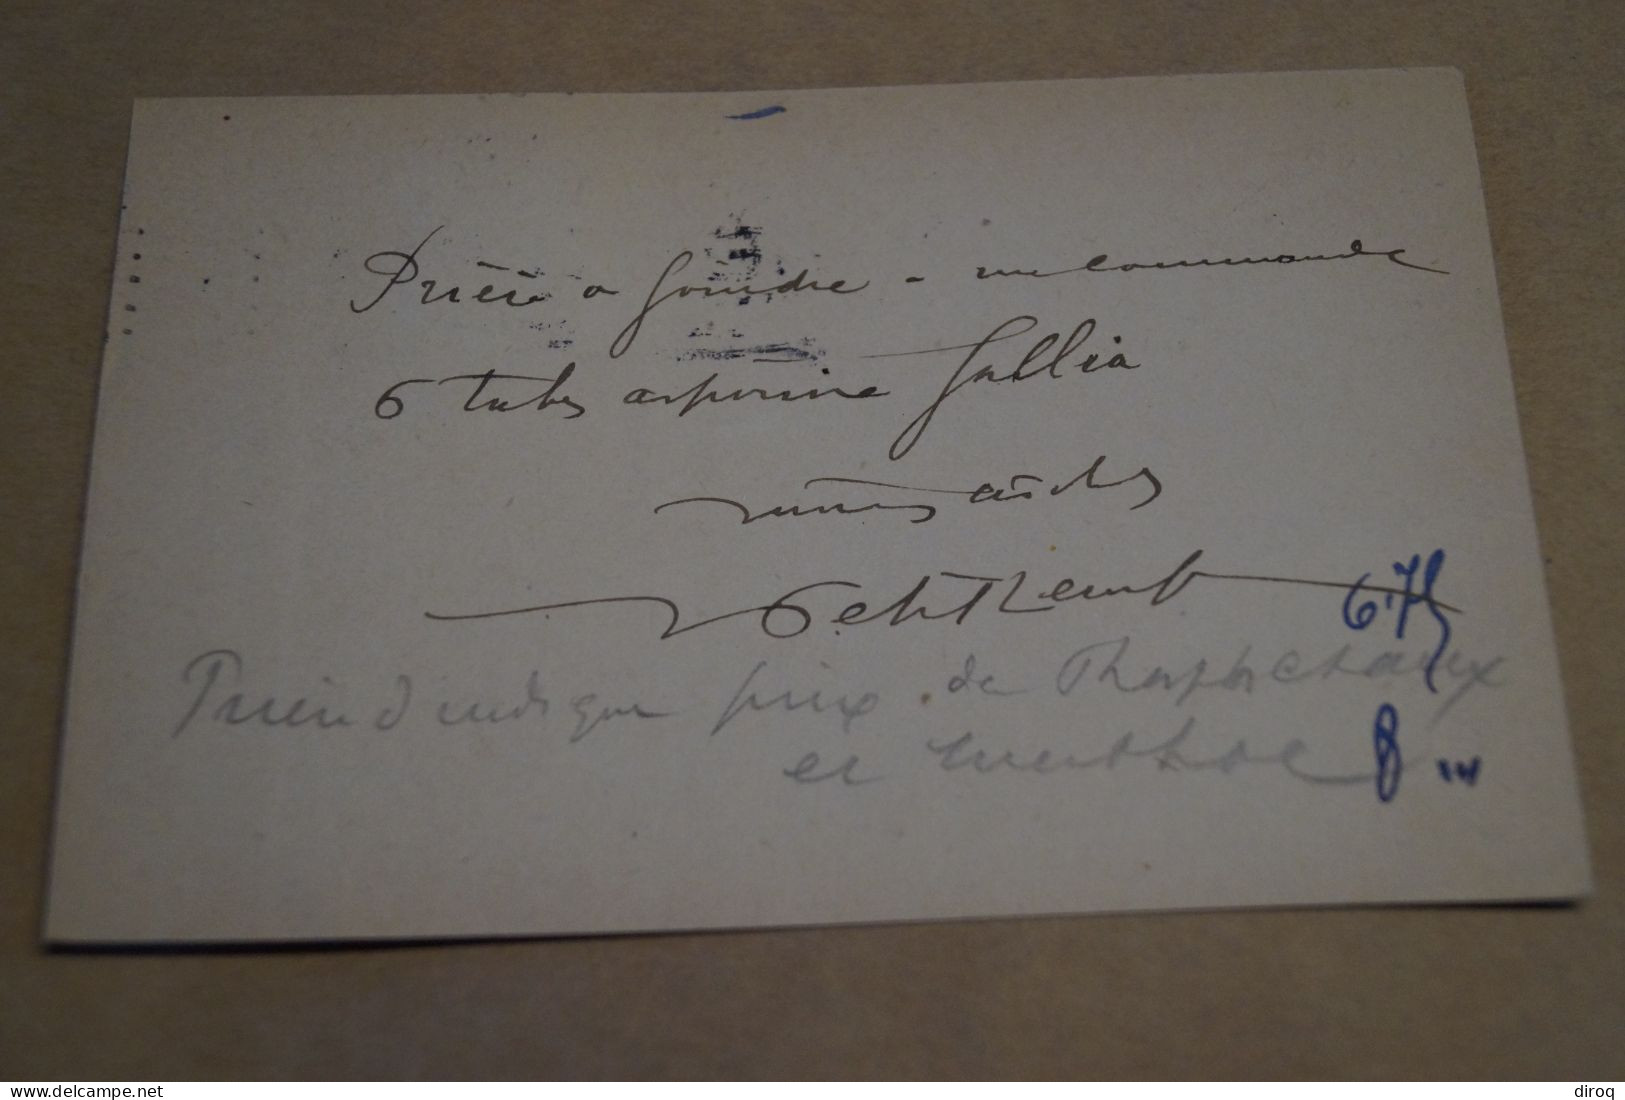 Prière a joindre - ma commande
6 tubes aspirine Gallia
Prière d indiquer prix de
et menthol
6.75
8 ...
www.delcampe.net
diroq